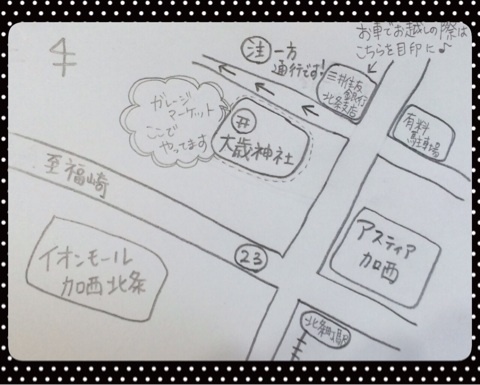 お車でお越しの際は
こちらを目印に♪
注 一方
通行です!
三井住友
銀行
北条支店
ガレージ
マーケット
ここで
やってます
大歳神社
有料
駐車場
至福崎
イオンモール
加西北条
23
アスティア
加西
北条町駅